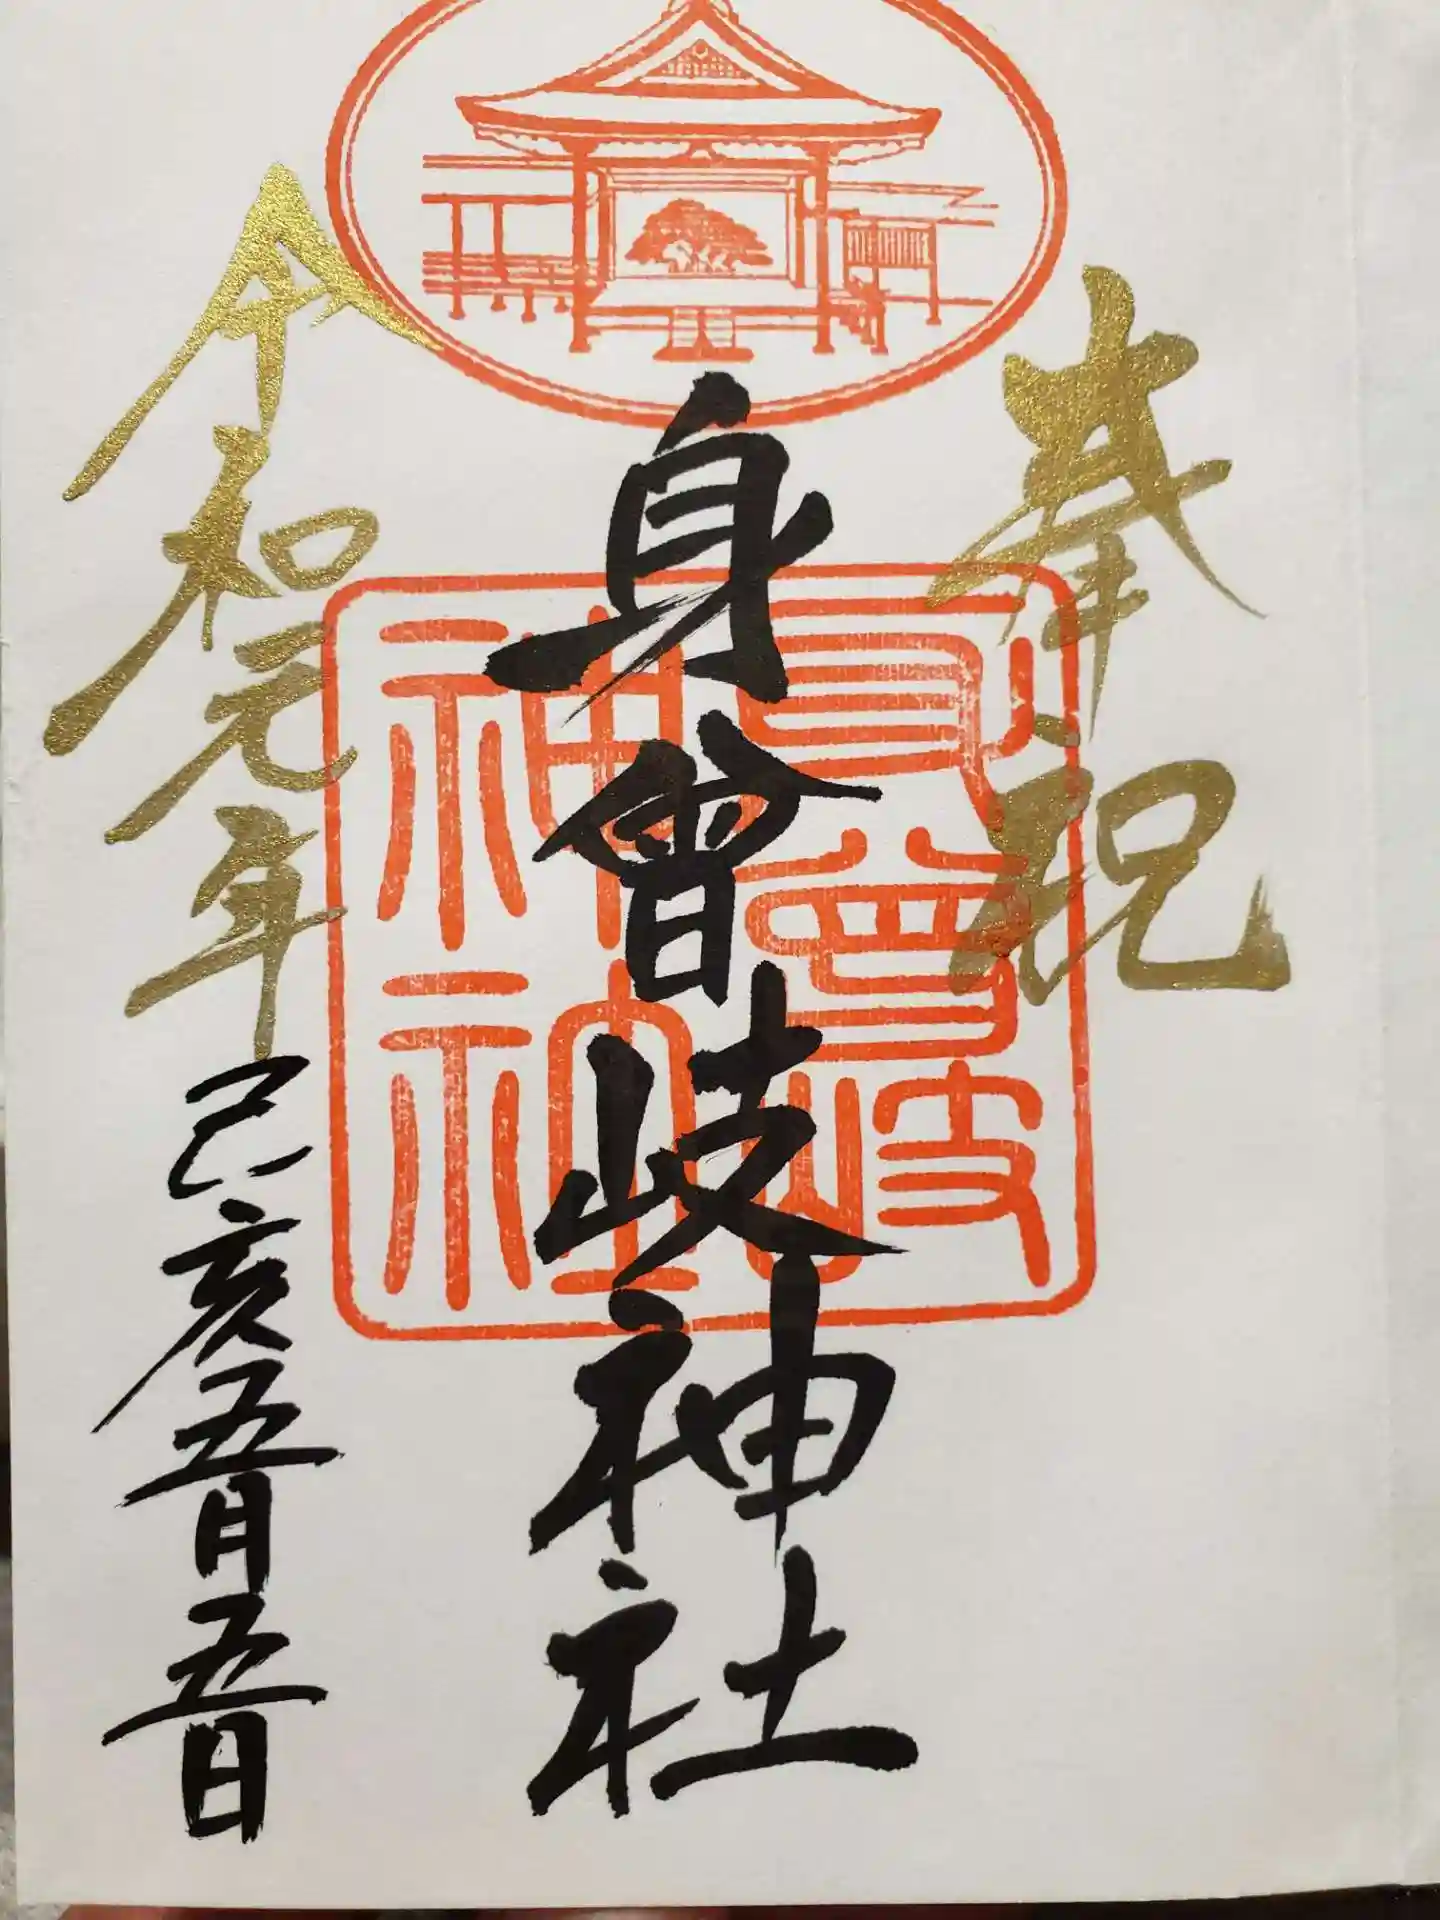 奉祝
身曾岐神社
身曾岐
神社
令和元年己亥五月五日